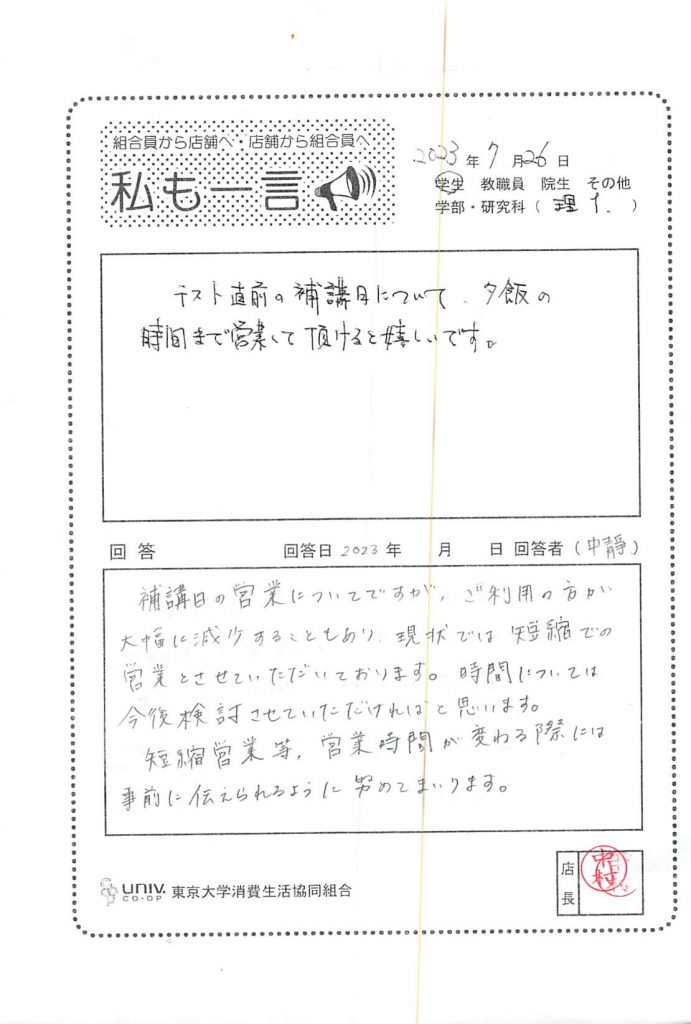 組合員から店舗へ・店舗から組合員へ
私も一言
2023年7月26日
学生 教職員 院生 その他
学部・研究科（理1.）
テスト直前の補講日について、夕飯の
時間まで営業して頂けると嬉しいです。
回答 回答日 2023年 月 日 回答者（中靜）
補講日の営業についてですが、ご利用の方が
大幅に減少することもあり、現状では短縮での
営業とさせていただいております。時間については
今後検討させていただければと思います。
短縮営業等、営業時間が変わる際には
事前に伝えられるように努めてまいります。
UNIV. CO-OP 東京大学消費生活協同組合
店長 中村